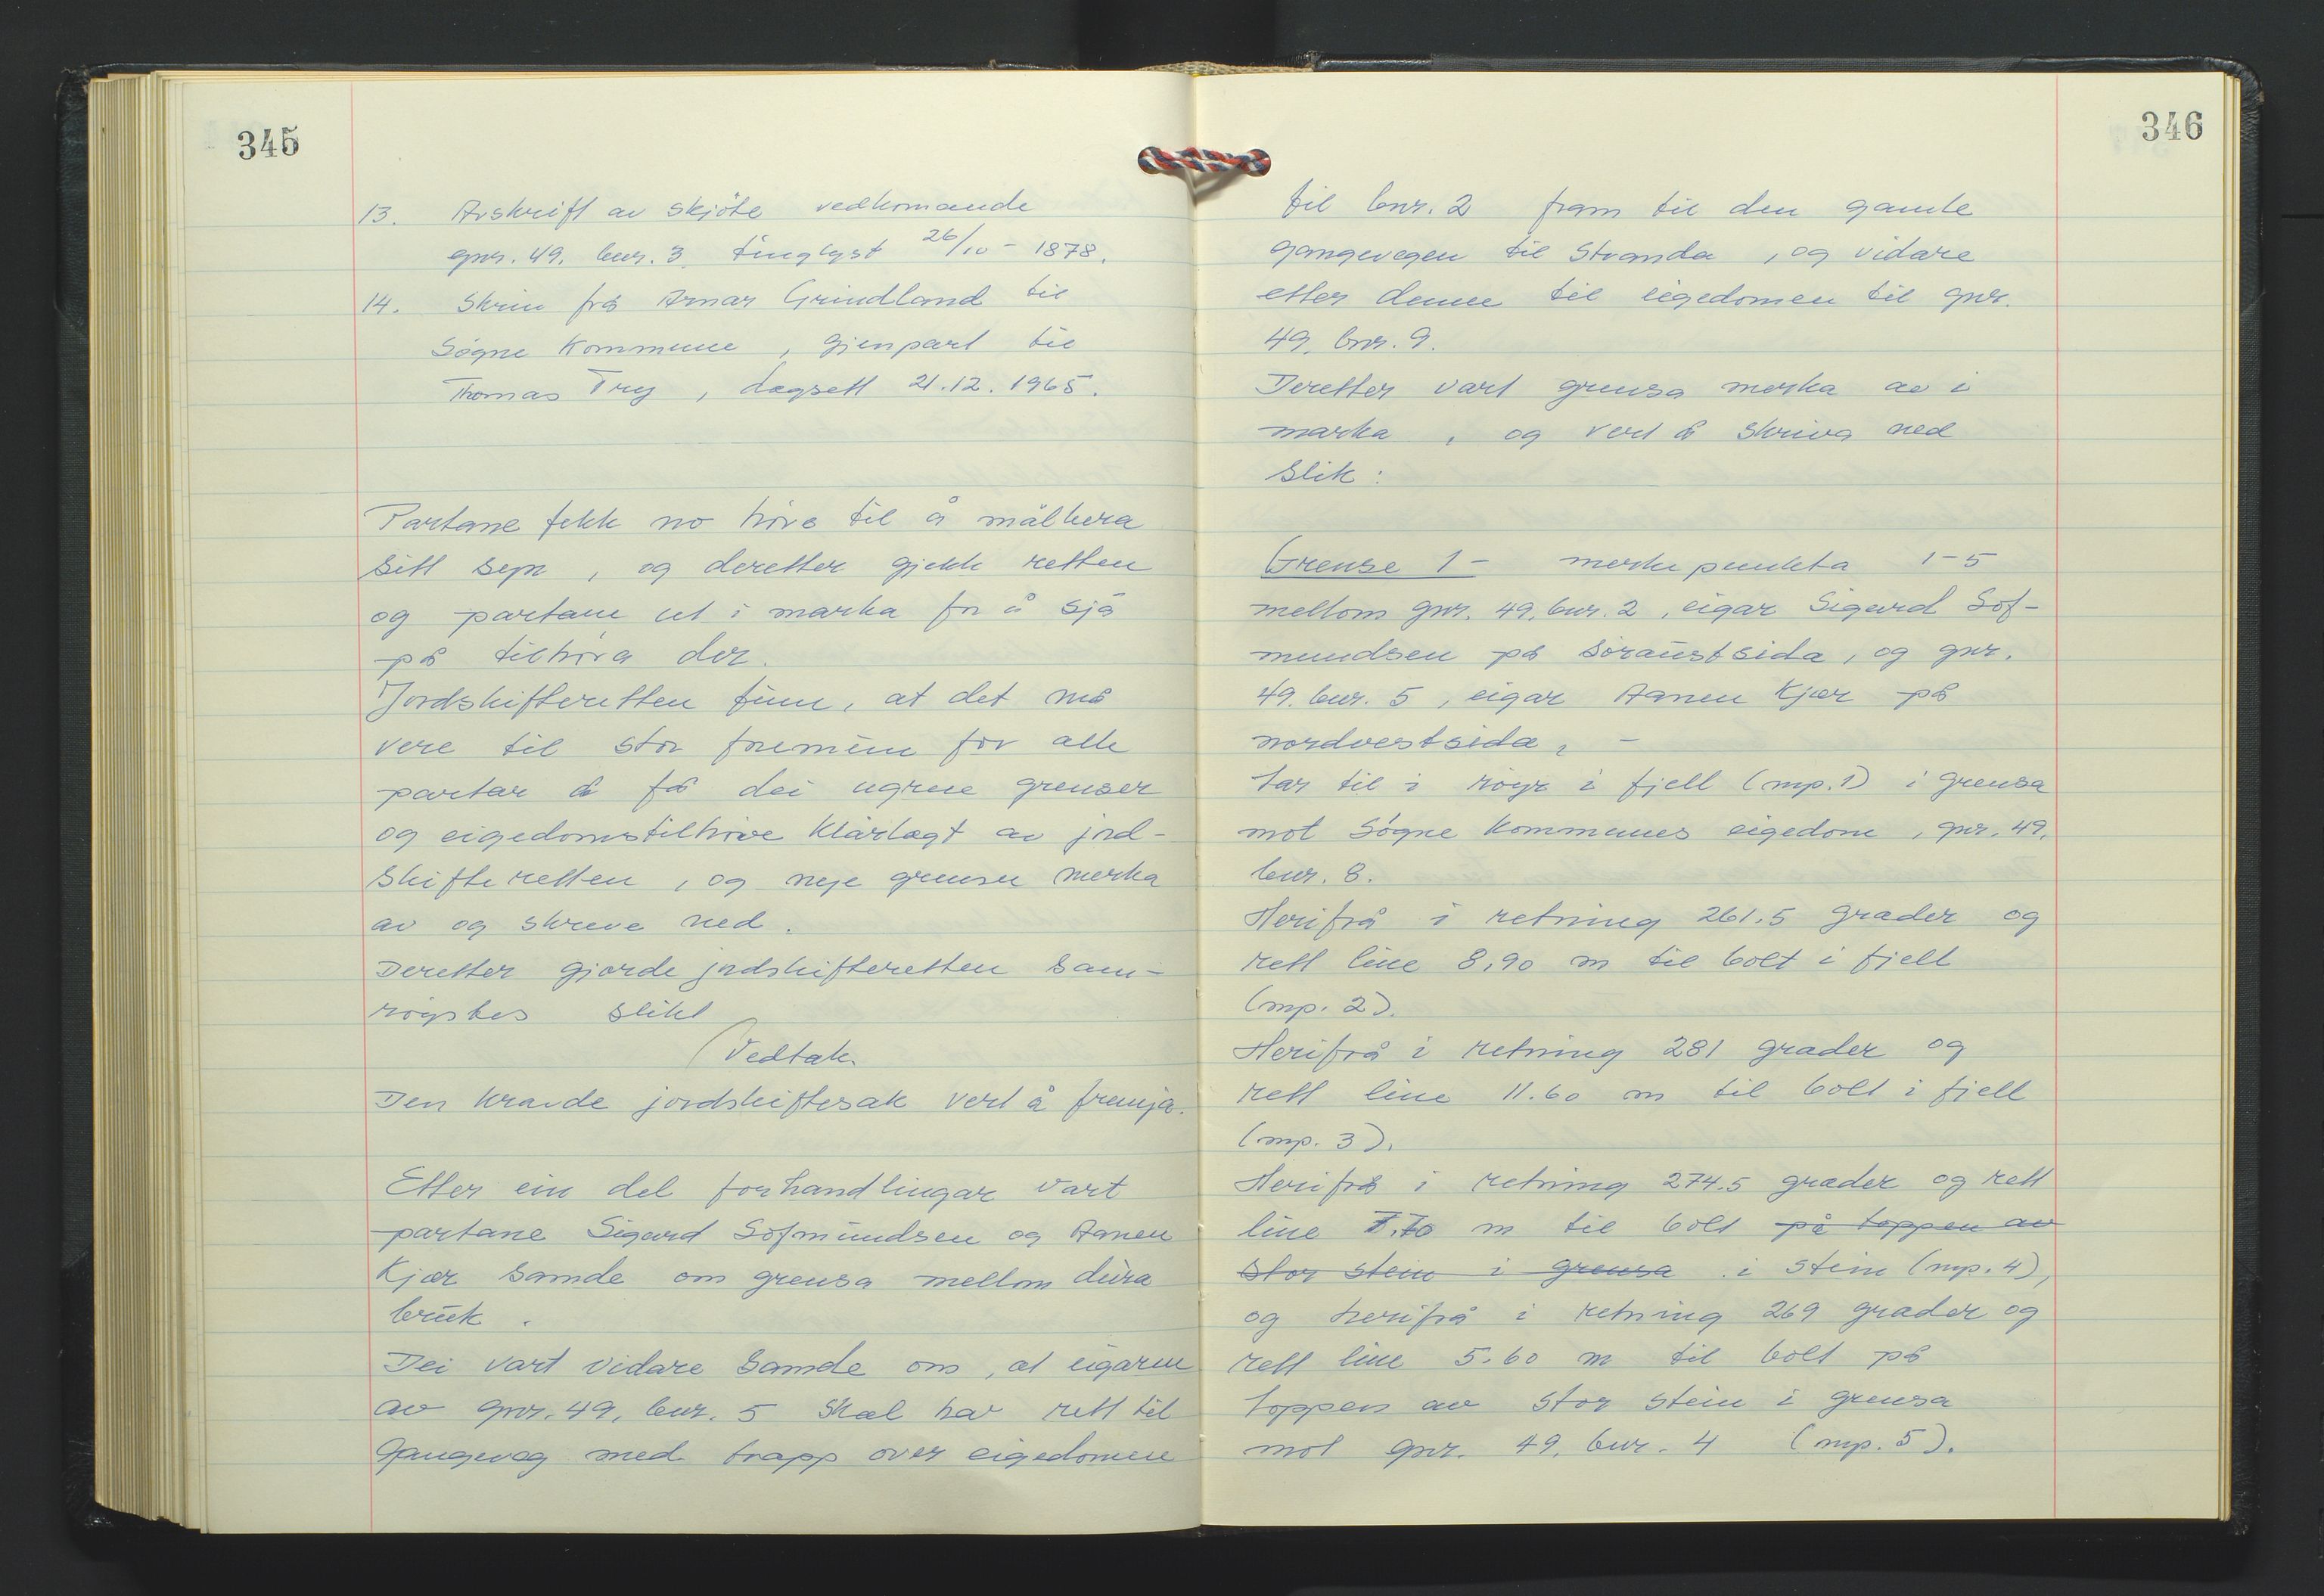 345
13. Avskrift av skjöte vedkomande
gnr. 49, bnr. 3, tinglyst 26/10 - 1878.
14. Skriv frå Arnar Grindland til
Søgne kommune, gjenpart til
Thomas Try, dagsett 21.12.1965.
Partane fekk no høve til å målbera
sitt syn, og deretter gjekk retten
og partane ut i marka for å sjå
på tilhøva der.
Jordskifteretten finn, at det må
vere til stor foremün for alle
partar å få dei ugreie grenser
og eigedomstilhøve klårlagt av jord-
skifteretten, og nye grenser merka
av og skreve ned.
Deretter gjorde jordskifteretten sam-
røystes slikt
Vedtak
Den kravde jordskiftesak vert å fremja.
Etter ein del forhandlingar vart
partane Sigurd Sofmundsen og Aanen
Kjær samde om grensa mellom düra
brük.
Dei vart vidare samde om, at eigaren
av gnr. 49, bnr. 5 skal hav rett til
Gangeveg med trapp over eigedomen
346
til bnr. 2 fram til den gamle
gangevegen til Stranda, og vidare
etter denne til eigedomen til gnr.
49, bnr. 9.
Deretter vart grensa merka av i
marka, og vert å skriva ned
slik:
Grense 1 - merkepunkta 1-5
mellom gnr. 49, bnr. 2, eigar Sigurd Sof-
mundsen på söraustsida, og gnr.
49. bnr. 5, eigar Aanen Kjær på
nordvestsida, -
tar til i røyr i fjell (mp. 1) i grensa
mot Søgne kommunes eigedom, gnr. 49,
bnr. 8.
Herifrå i retning 261.5 grader og
rett line 8,90 m til bolt i fjell
(mp. 2).
Herifrå i retning 281 grader og
rett line 11.60 m til bolt i fjell
(mp. 3).
Herifrå i retning 274.5 grader og rett
line 7.70 m til bolt på toppen av
stor stein i grensa i stein (mp. 4),
og herifrå i retning 269 grader og
rett line 5.60 m til bolt på
toppen av stor stein i grensa
mot gnr. 49, bnr. 4 (mp. 5).